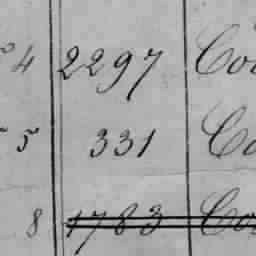 4 2297 Co
5 331 Co
8 1783 Co